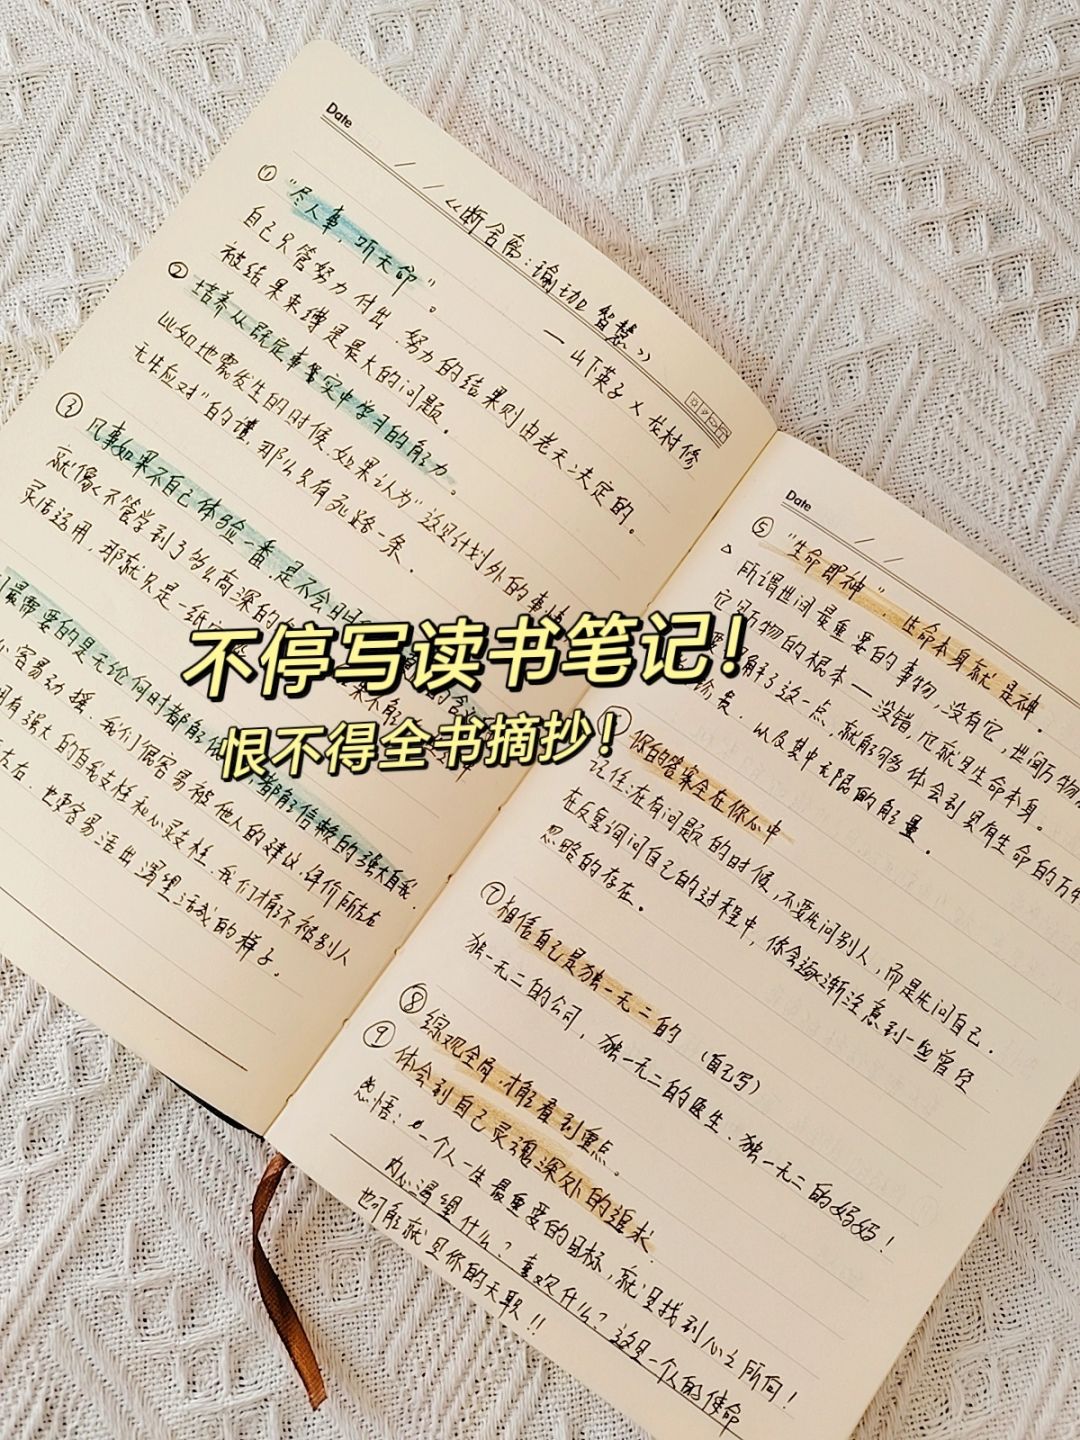 Date / /
《断舍离：瑜珈智慧》
——山下英子×龙村修
① “尽人事，听天命”。
自己只管努力付出，努力的结果则由老天决定的。
被结果束缚是最大的问题。
② 培养从既定事实中学习的能力。
比如地震发生的时候，如果认为“这是计划外的事情
无法应对”的话，那么只有死路一条。
③ 凡事如果不自己体验一番，是不会明
就像不管学到了多么高深的
灵活运用，那就只是一纸
最需要的是无论何时都能 都能信赖的强大自我。
容易动摇，我们很容易被他人的建议、评价所左右
拥有强大的自我支柱和心灵支柱，我们将不被别人
左右，也更容易活出渴望活成的样子。
不停写读书笔记！
恨不得全书摘抄！
Date / /
⑤ “生命即神”，生命本身就是神。
所谓世间最重要的事物，没有它，世间万物
它是万物的根本——没错，它就是生命本身。
解了这一点，就能够体会到具有生命的万物
珍贵，以及其中无限的能量。
你的答案全在你心中
记住：在有问题的时候，不要先问别人，而是先问自己。
在反复询问自己的过程中，你会逐渐注意到一些曾经
忽略的存在。
⑦ 相信自己是独一无二的（自己写）
独一无二的公司，独一无二的医生、独一无二的妈妈！
⑧ 综观全局，才能看到重点。
⑨ 体会到自己灵魂深处的追求
感悟：一个人一生最重要的目标，就是找到心之所向！
内心渴望什么？喜欢什么？这是一个人的使命
也可能就是你的天职!!